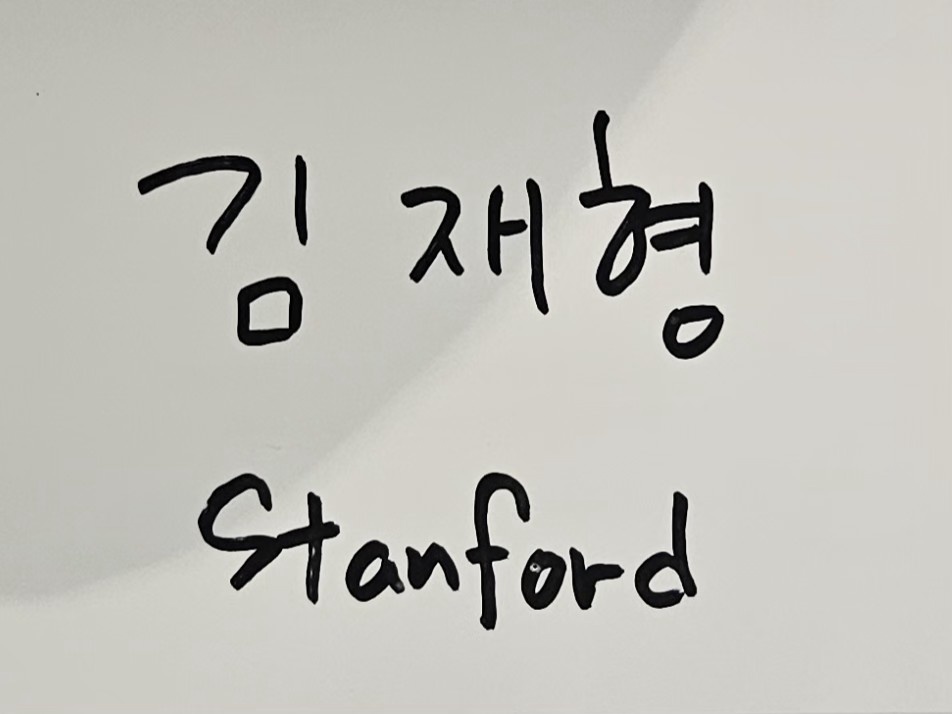 김재형
Stanford